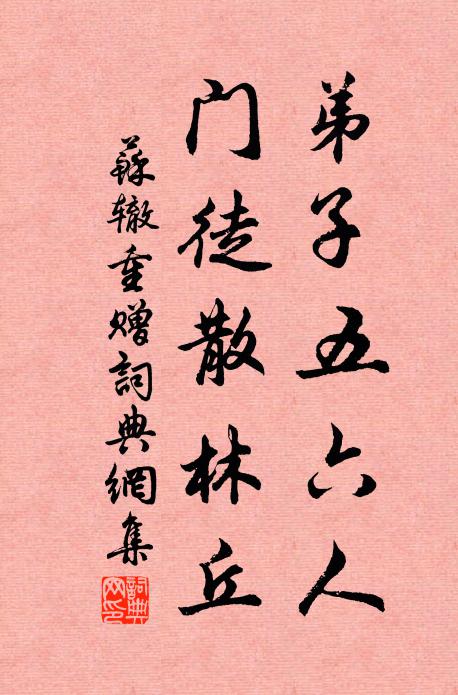 弟子五六人
门徒散林丘
蘇辙重赠詞典網集
詞典
网印